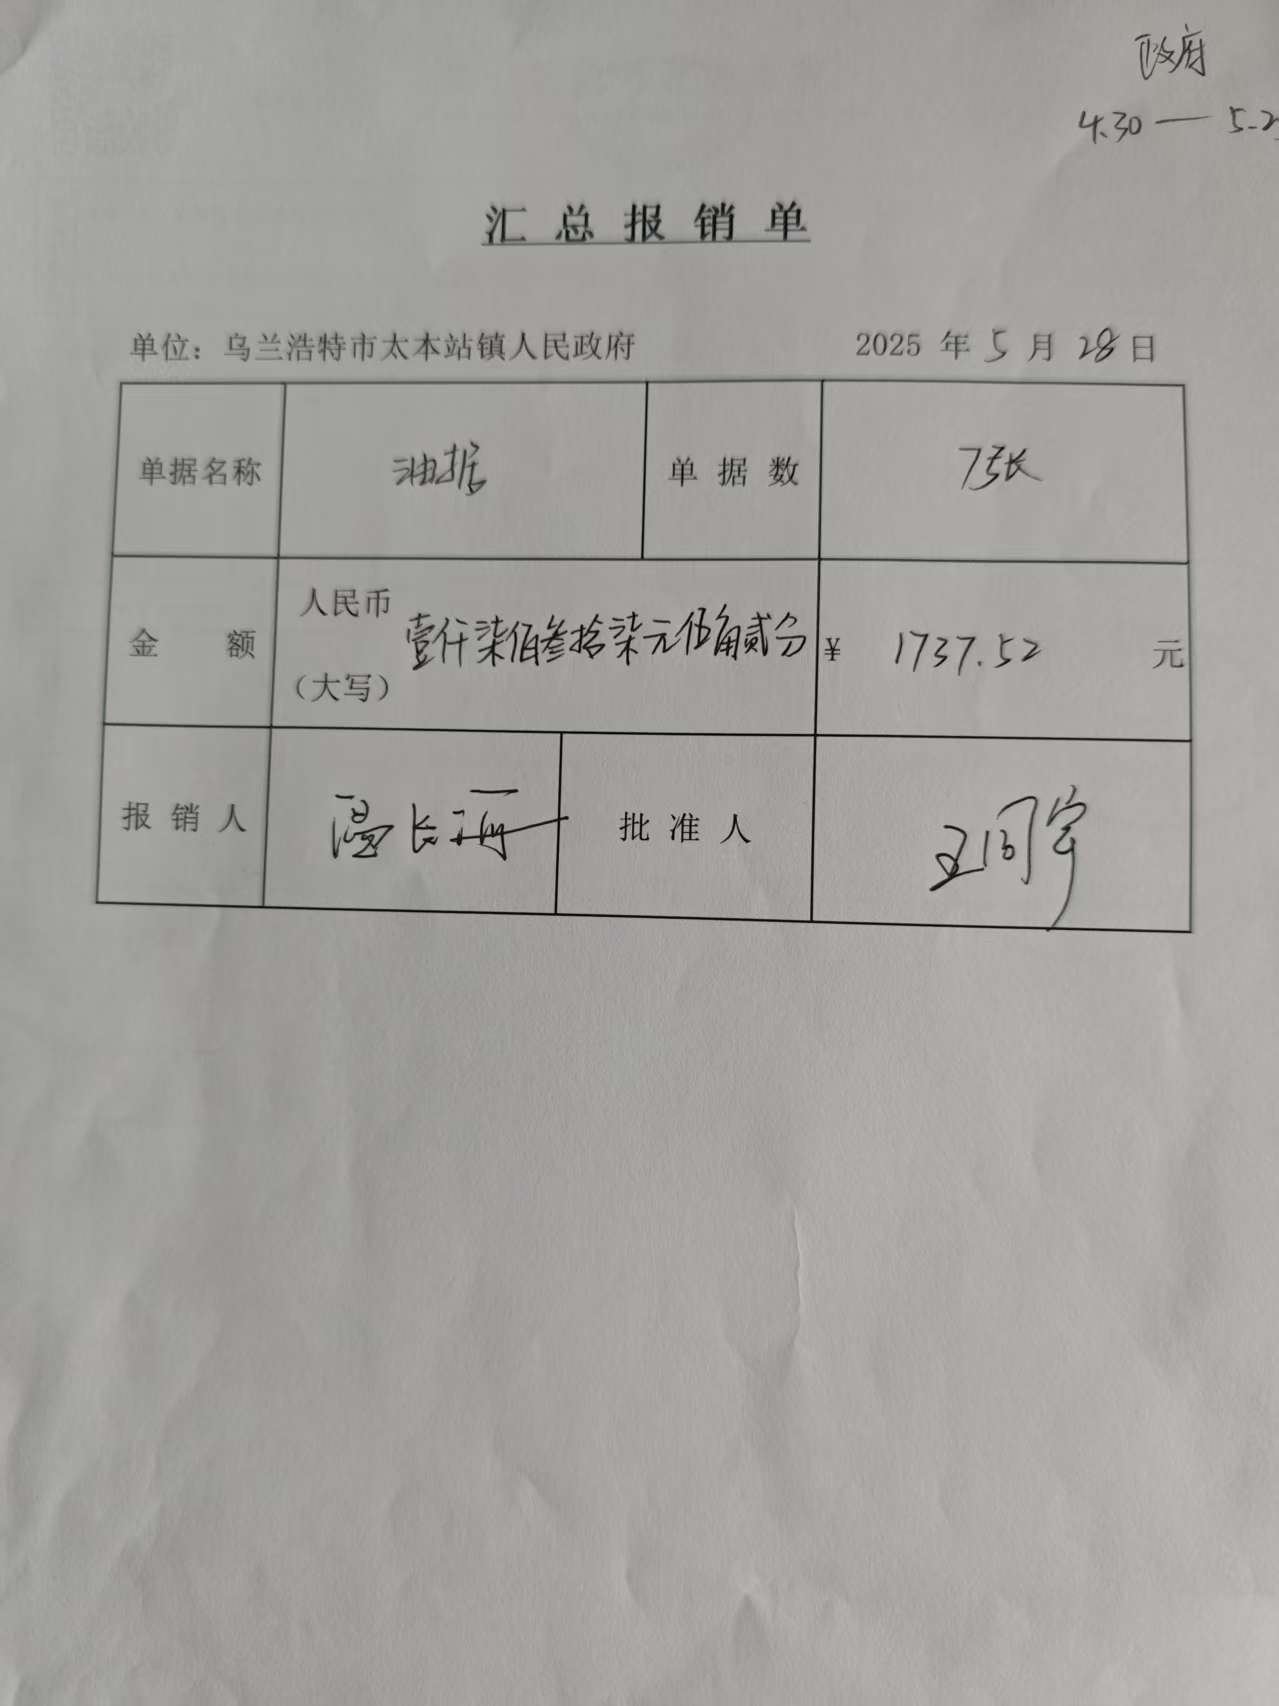 政府
4.30 — 5.2
汇总报销单
单位：乌兰浩特市太本站镇人民政府 2025 年 5 月 28 日
单据名称 油据 单据数 7张
金额 人民币（大写） 壹仟柒佰叁拾柒元伍角贰分 ¥ 1737.52 元
报销人 温长海 批准人 王同宇